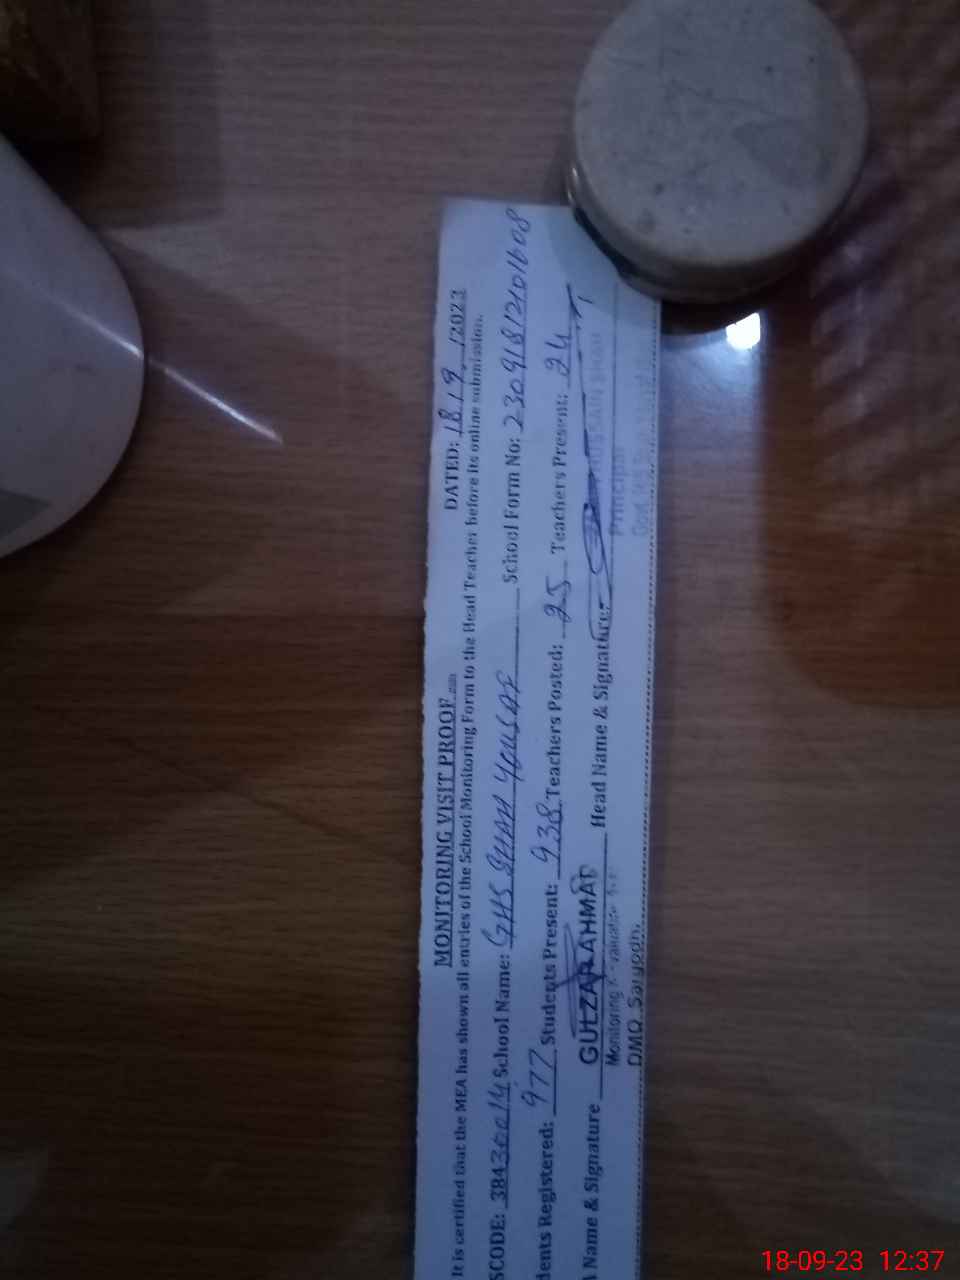 MONITORING VISIT PROOF DATED: 18/9/2023
It is certified that the MEA has shown all entries of the School Monitoring Form to the Head Teacher before its online submission.
SCODE: 38430014 School Name: GHS SHAH YOUSAF School Form No: 23091812101608
dents Registered: 977 Students Present: 938 Teachers Posted: 25 Teachers Present: 24
Name & Signature GULZAR AHMAD Head Name & Signature:
Monitoring
DMO Sargodh
Principal
18-09-23 12:37